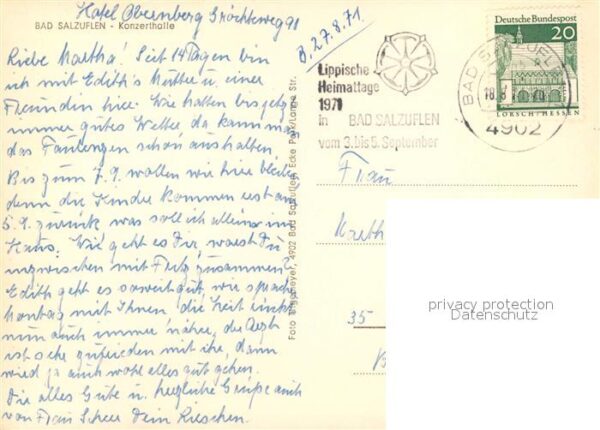 Hotel Obernberg Gröchteweg 91
BAD SALZUFLEN - Konzerthalle
B. 27.8.71.
Liebe Martha! Seit 14 Tagen bin
ich mit Edith's Mutter u. einer
Freundin hier. Wir hatten bis jetzt
immer gutes Wetter, da kann man
das Faulenzen schon aushalten.
Bis zum 7.9. wollen wir hier bleiben
denn die Kinder kommen erst am
5.9. zurück was soll ich alleine im
Haus. Wie geht es Dir, warst Du
inzwischen mit Fritz zusammen
Edith geht es soweit gut, wir sprachen
Montag mit Ihnen, die Zeit rückt
nun auch immer näher, der Arzt
ist sehr zufrieden mit ihr, dann
wird ja auch wohl alles gut gehen.
Dir alles Gute u. herzliche Grüße auch
von Frau Scheer Dein Rieschen.
Foto Stegemeyer, 4902 Bad Salzuflen, Ecke Park/Lange Str.
Lippische
Heimattage
1971
in BAD SALZUFLEN
vom 3. bis 5. September
Deutsche Bundespost
20
LORSCH/HESSEN
BAD SALZUFLEN
4902
Frau
Marth
35
privacy protection
Datenschutz